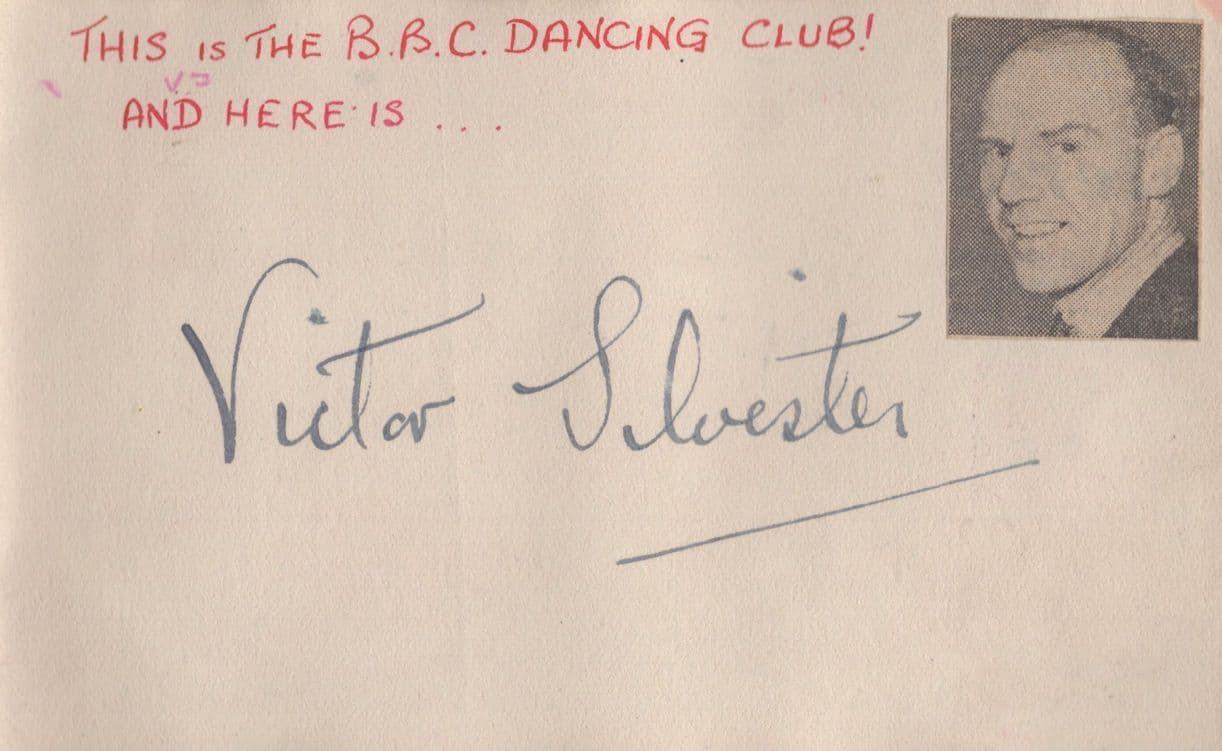 THIS IS THE B.B.C. DANCING CLUB!
AND HERE IS ...
Victor Silvester